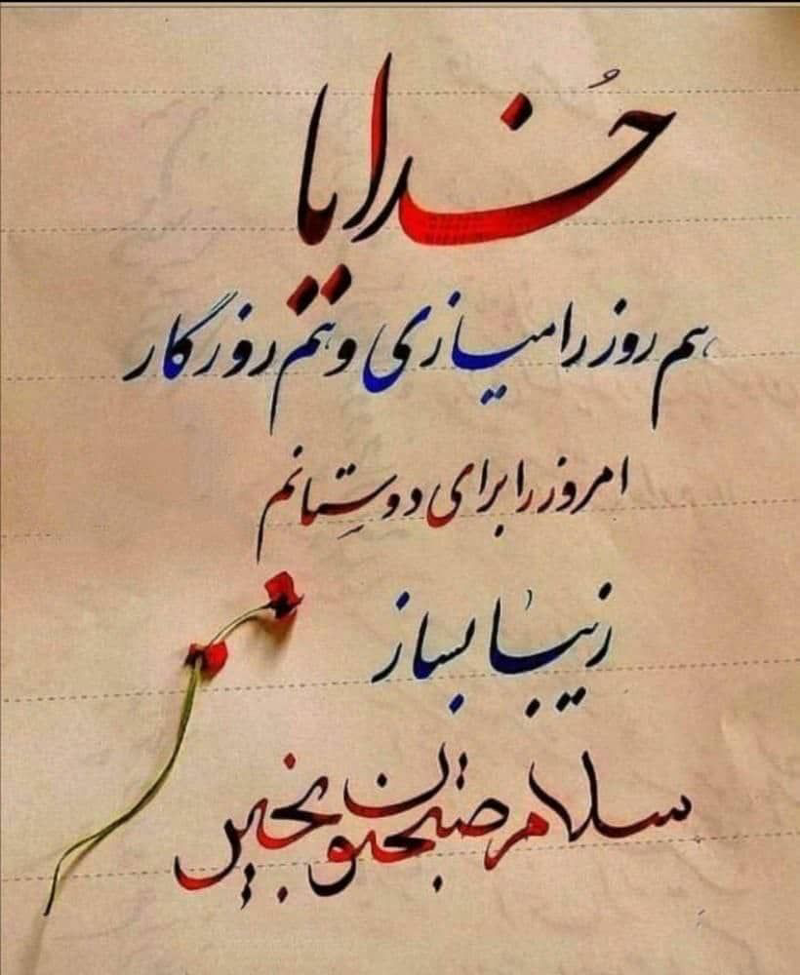 خُدایا
هم روز را میسازی و هم روزگار
امروز را برای دوستانم
زیبا بساز
سلام صبحتون بخیر